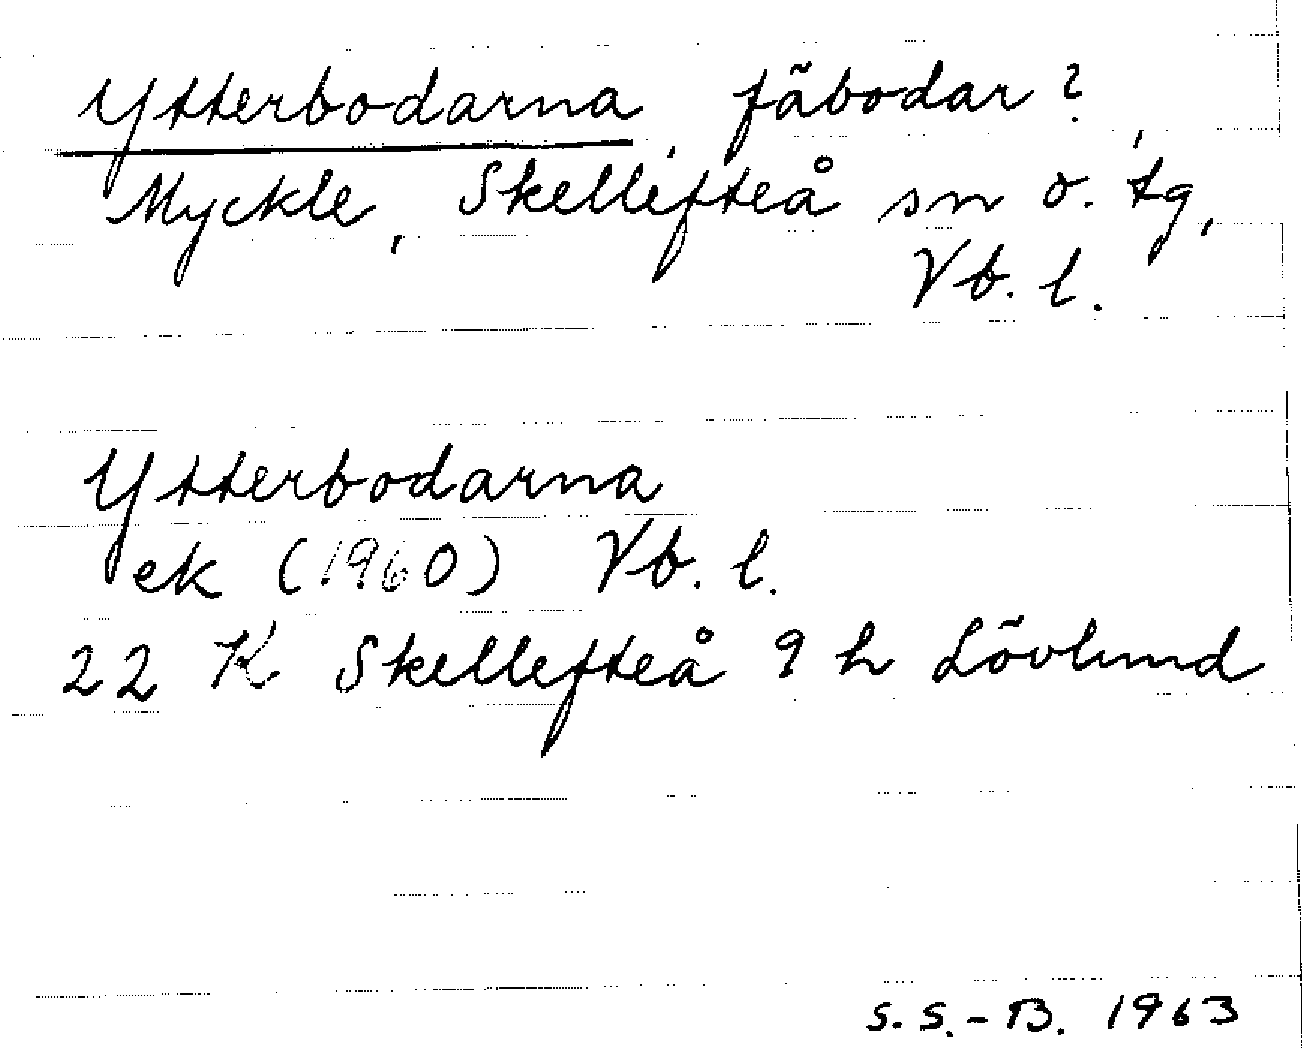 Ytterbodarna, fäbodar?,
Myckle, Skellefteå sn o. tg,
Vb. l.
Ytterbodarna
ek (1960) Vb. l.
22 K Skellefteå 9 h Lövlund
S. S.-B. 1963